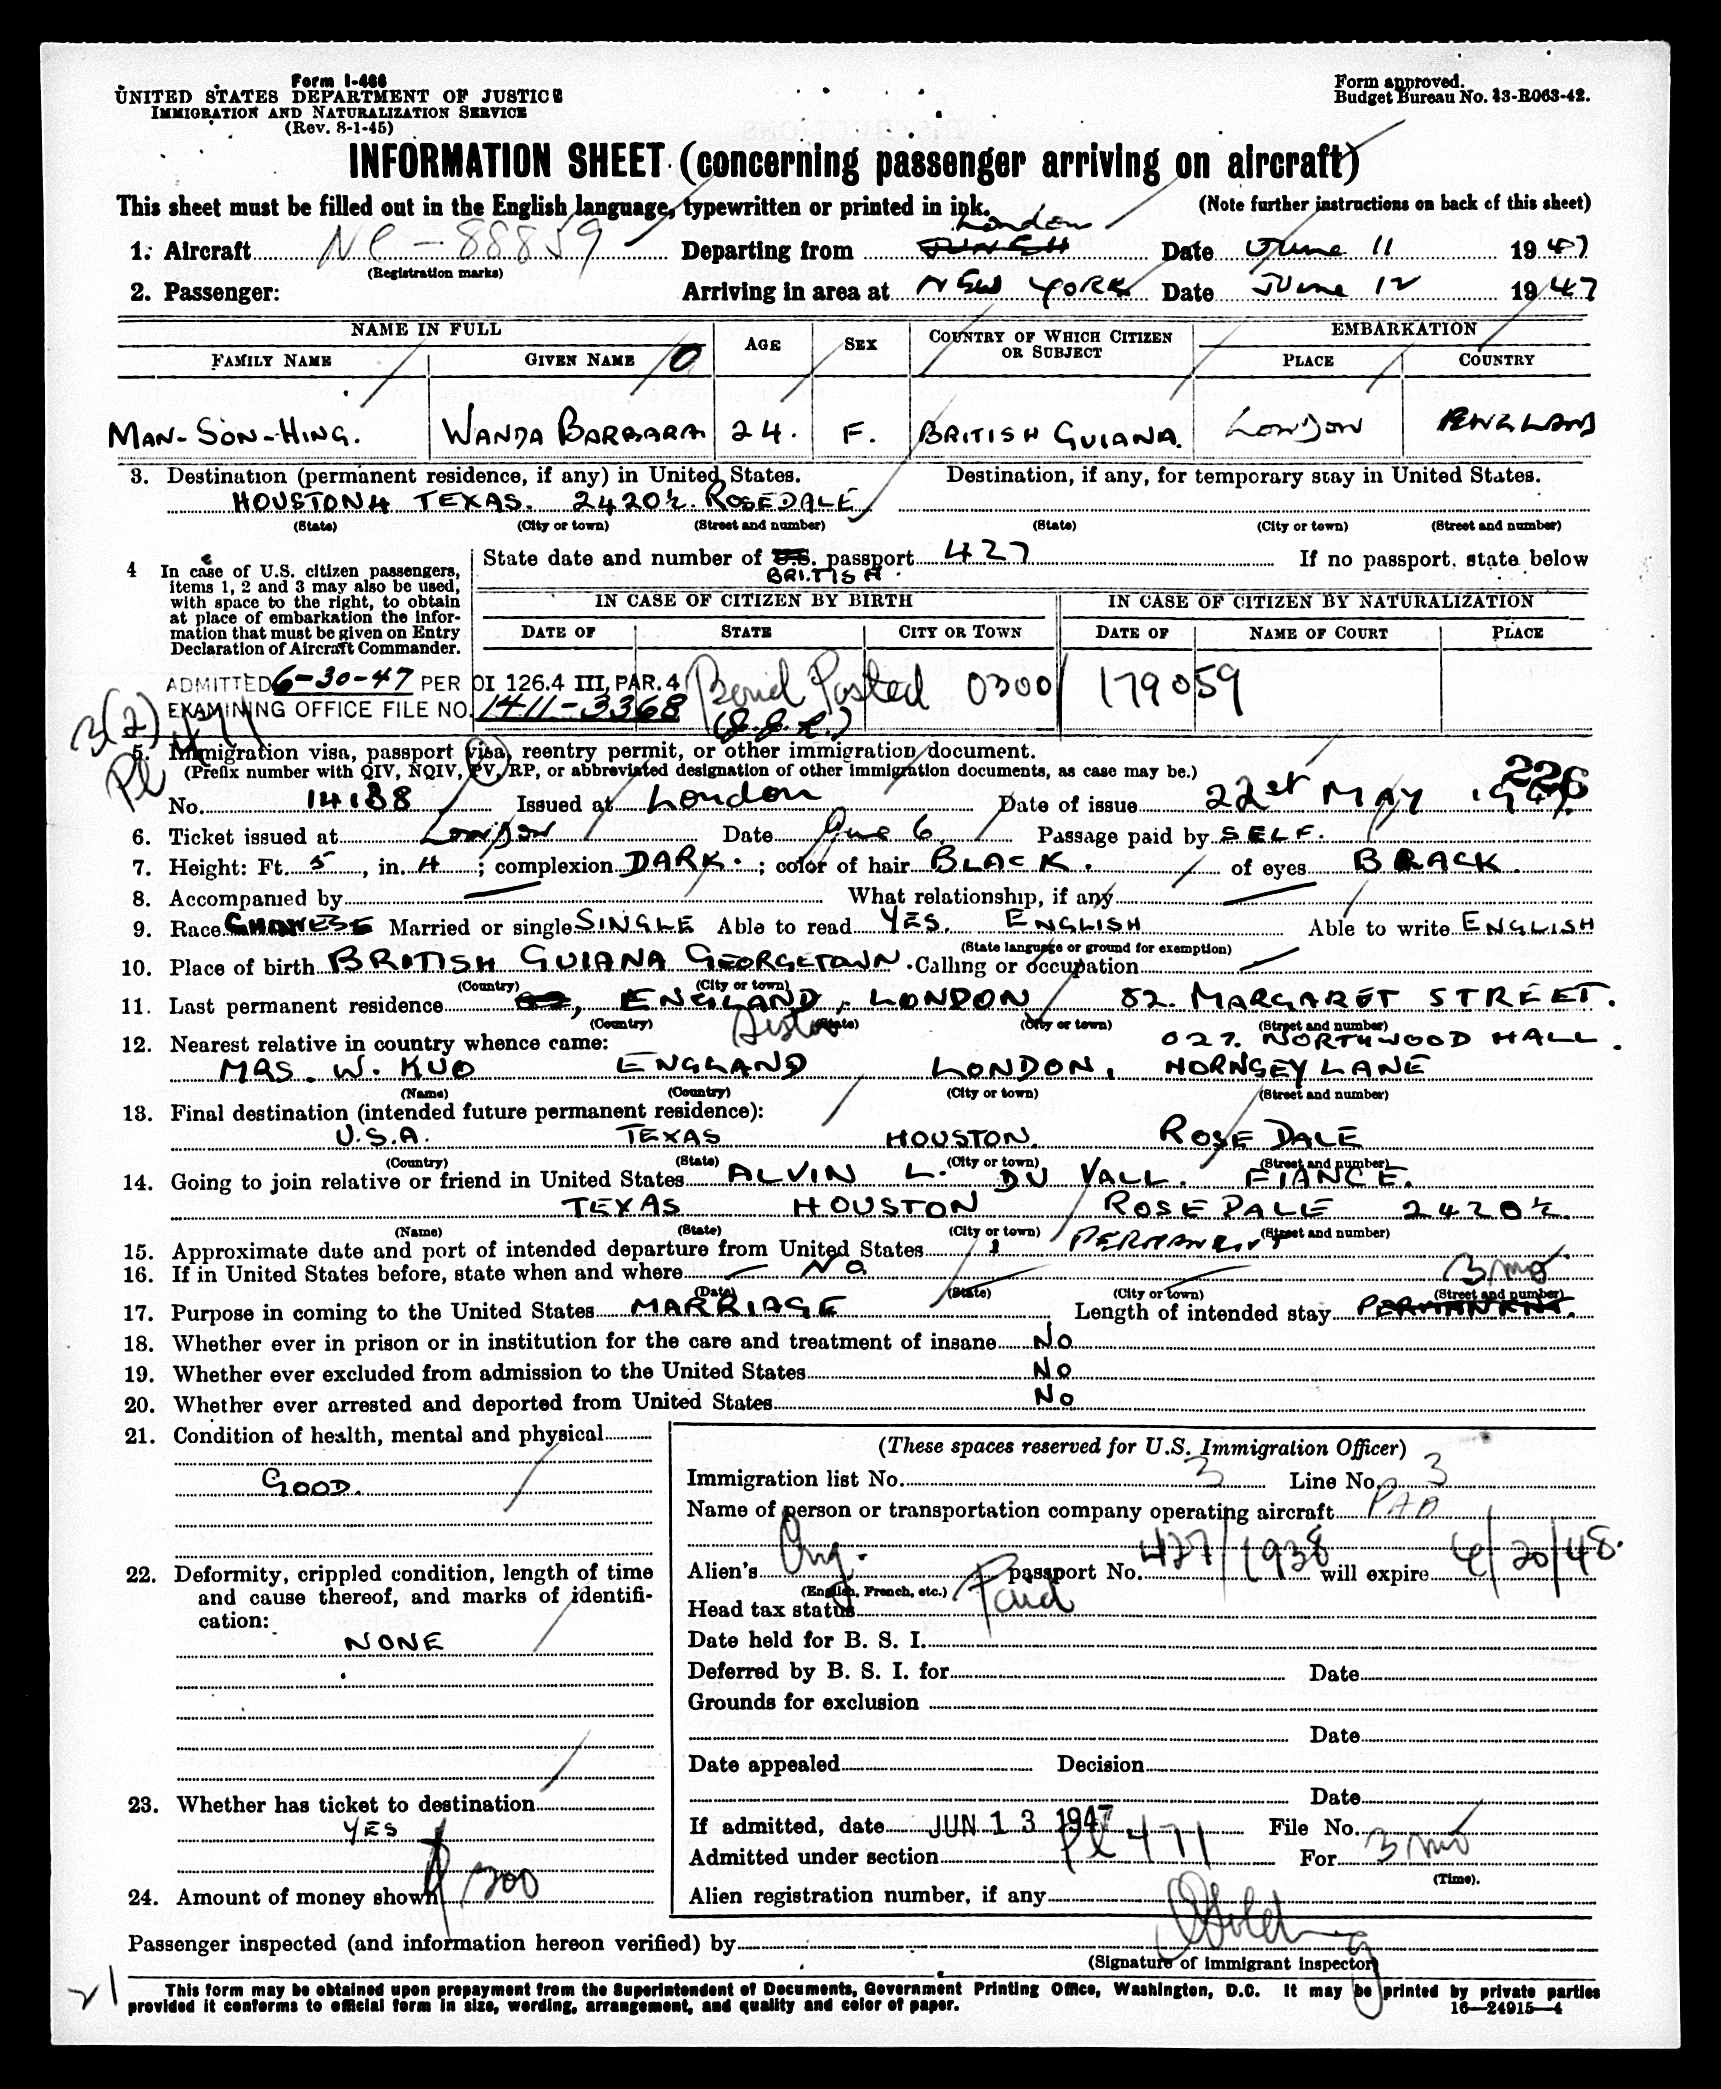 Form I-466
UNITED STATES DEPARTMENT OF JUSTICE
IMMIGRATION AND NATURALIZATION SERVICE
(Rev. 8-1-45)
Form approved.
Budget Bureau No. 43-R063-42.
INFORMATION SHEET (concerning passenger arriving on aircraft)
This sheet must be filled out in the English language, typewritten or printed in ink.
(Note further instructions on back of this sheet)
London
1. Aircraft NC-88859 Departing from Date June 11 1947
(Registration marks)
2. Passenger: Arriving in area at NEW YORK Date June 12 1947
NAME IN FULL AGE SEX COUNTRY OF WHICH CITIZEN OR SUBJECT EMBARKATION
FAMILY NAME GIVEN NAME PLACE COUNTRY
MAN-SON-HING. WANDA BARBARA 24. F. BRITISH GUIANA. LONDON ENGLAND
3. Destination (permanent residence, if any) in United States. Destination, if any, for temporary stay in United States.
HOUSTON TEXAS. 2420½. ROSEDALE
(State) (City or town) (Street and number) (State) (City or town) (Street and number)
4 In case of U.S. citizen passengers, items 1, 2 and 3 may also be used, with space to the right, to obtain at place of embarkation the information that must be given on Entry Declaration of Aircraft Commander.
State date and number of U.S. passport 427 If no passport, state below
BRITISH
IN CASE OF CITIZEN BY BIRTH IN CASE OF CITIZEN BY NATURALIZATION
DATE OF STATE CITY OR TOWN DATE OF NAME OF COURT PLACE
ADMITTED 6-30-47 PER OI 126.4 III, PAR. 4 Bond Posted 0300/179059
EXAMINING OFFICE FILE NO. 1411-3368
3(2)
5. Immigration visa, passport visa, reentry permit, or other immigration document.
(Prefix number with QIV, NQIV, PV, RP, or abbreviated designation of other immigration documents, as case may be.)
226
No. 14188 Issued at London Date of issue 22st MAY 1947.
6. Ticket issued at LONDON Date June 6 Passage paid by SELF.
7. Height: Ft. 5, in. 4; complexion DARK.; color of hair BLACK. of eyes BLACK.
8. Accompanied by — What relationship, if any —
9. Race CHINESE Married or single SINGLE Able to read YES. ENGLISH Able to write ENGLISH
(State language or ground for exemption)
10. Place of birth BRITISH GUIANA GEORGETOWN. Calling or occupation —
(Country) (City or town)
11. Last permanent residence ENGLAND, LONDON 82. MARGARET STREET.
(Country) (State) (City or town) (Street and number)
12. Nearest relative in country whence came: Sister 027. NORTHWOOD HALL.
MRS. W. KUO ENGLAND LONDON, HORNSEY LANE
(Name) (Country) (City or town) (Street and number)
13. Final destination (intended future permanent residence):
U.S.A. TEXAS HOUSTON. ROSEDALE
(Country) (State) (City or town) (Street and number)
14. Going to join relative or friend in United States ALVIN L. DU VALL. FIANCE.
TEXAS HOUSTON ROSEDALE 2420½.
(Name) (State) (City or town) (Street and number)
15. Approximate date and port of intended departure from United States PERMANENT
16. If in United States before, state when and where — NO
(Date) (State) (City or town) (Street and number)
3 mo
17. Purpose in coming to the United States MARRIAGE Length of intended stay PERMANENT.
18. Whether ever in prison or in institution for the care and treatment of insane No
19. Whether ever excluded from admission to the United States No
20. Whether ever arrested and deported from United States No
21. Condition of health, mental and physical
GOOD.
22. Deformity, crippled condition, length of time and cause thereof, and marks of identification:
NONE
23. Whether has ticket to destination
YES
24. Amount of money shown $ 200
(These spaces reserved for U.S. Immigration Officer)
Immigration list No. 3 Line No. 3
Name of person or transportation company operating aircraft PAA
Alien's Eng. passport No. 427/1938 will expire 4/20/48.
(English, French, etc.)
Head tax status Paid
Date held for B. S. I.
Deferred by B. S. I. for Date
Grounds for exclusion
Date
Date appealed Decision
Date
If admitted, date JUN 13 1947 File No.
Admitted under section PL 471 For 3 mo
(Time).
Alien registration number, if any
Passenger inspected (and information hereon verified) by
(Signature of immigrant inspector)
21
This form may be obtained upon prepayment from the Superintendent of Documents, Government Printing Office, Washington, D.C. It may be printed by private parties
provided it conforms to official form in size, wording, arrangement, and quality and color of paper.
16—24915-4